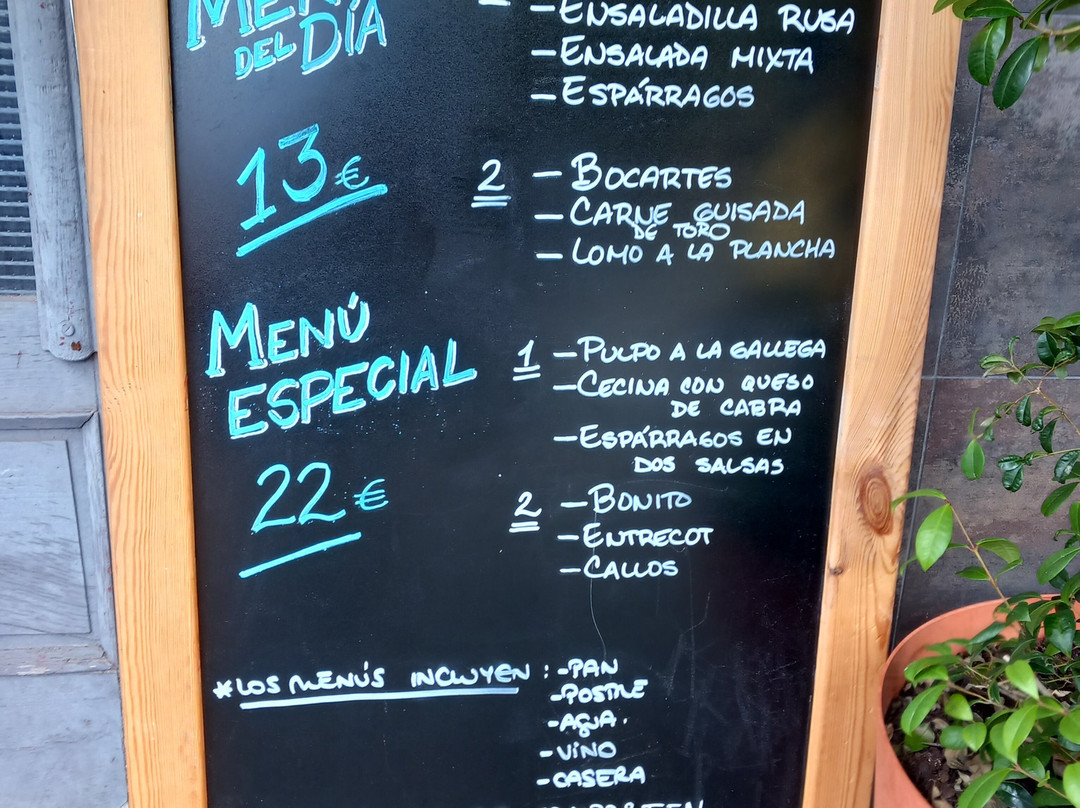 MENÚ
DEL DÍA
13€
- ENSALADILLA RUSA
- ENSALADA MIXTA
- ESPÁRRAGOS
2 - BOCARTES
- CARNE GUISADA
DE TORO
- LOMO A LA PLANCHA
MENÚ
ESPECIAL
22€
1 - PULPO A LA GALLEGA
- CECINA CON QUESO
DE CABRA
- ESPÁRRAGOS EN
DOS SALSAS
2 - BONITO
- ENTRECOT
- CALLOS
*LOS MENÚS INCLUYEN: -PAN
-POSTRE
-AGUA.
-VINO
-CASERA